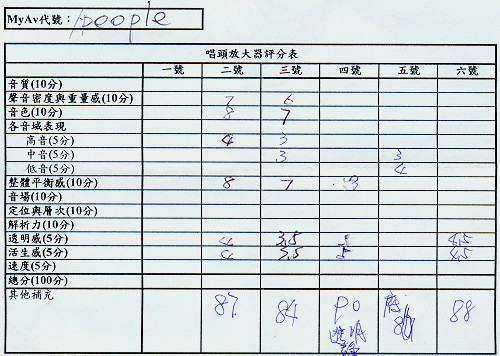 MyAv代號： poople
唱頭放大器評分表
一號 二號 三號 四號 五號 六號
音質(10分)
聲音密度與重量感(10分) 7 6
音色(10分) 8 7
各音域表現
高音(5分) 4 3
中音(5分) 3 3
低音(5分) 4
整體平衡感(10分) 8 7
音場(10分)
定位與層次(10分)
解析力(10分)
透明感(5分) 4 3.5 4.5
活生感(5分) 4 3.5 5 4.5
速度(5分)
總分(100分)
其他補充 87 84 88